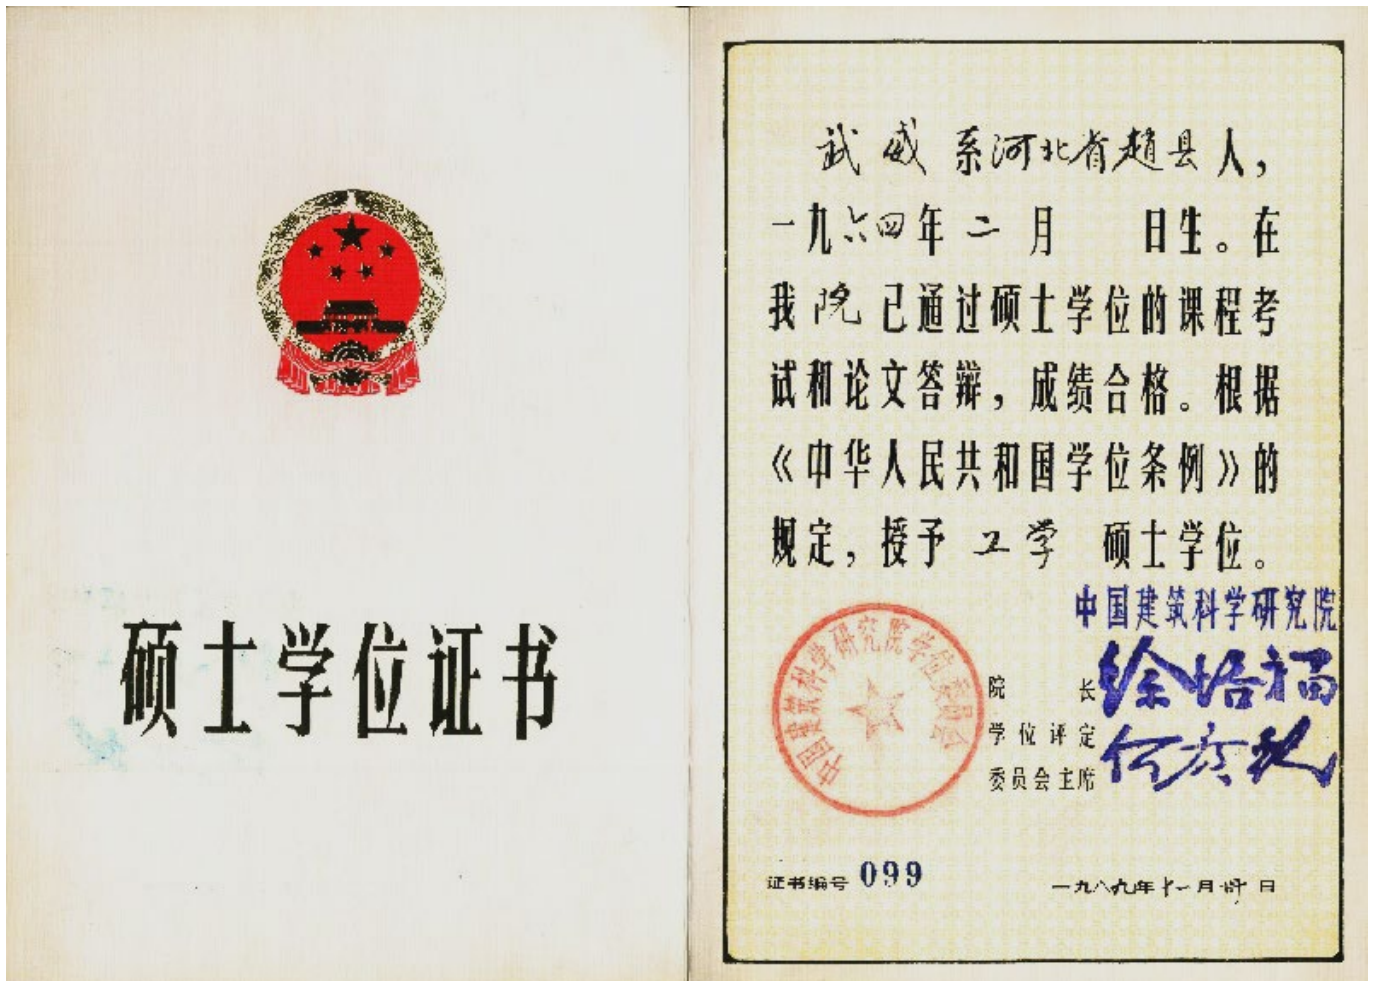 硕士学位证书
武威系河北省赵县人，
一九六四年二月 日生。在
我院已通过硕士学位的课程考
试和论文答辩，成绩合格。根据
《中华人民共和国学位条例》的
规定，授予工学硕士学位。
中国建筑科学研究院
中国建筑科学研究院学位委员会
院长
学位评定
委员会主席
证书编号 099
一九八九年十一月 日